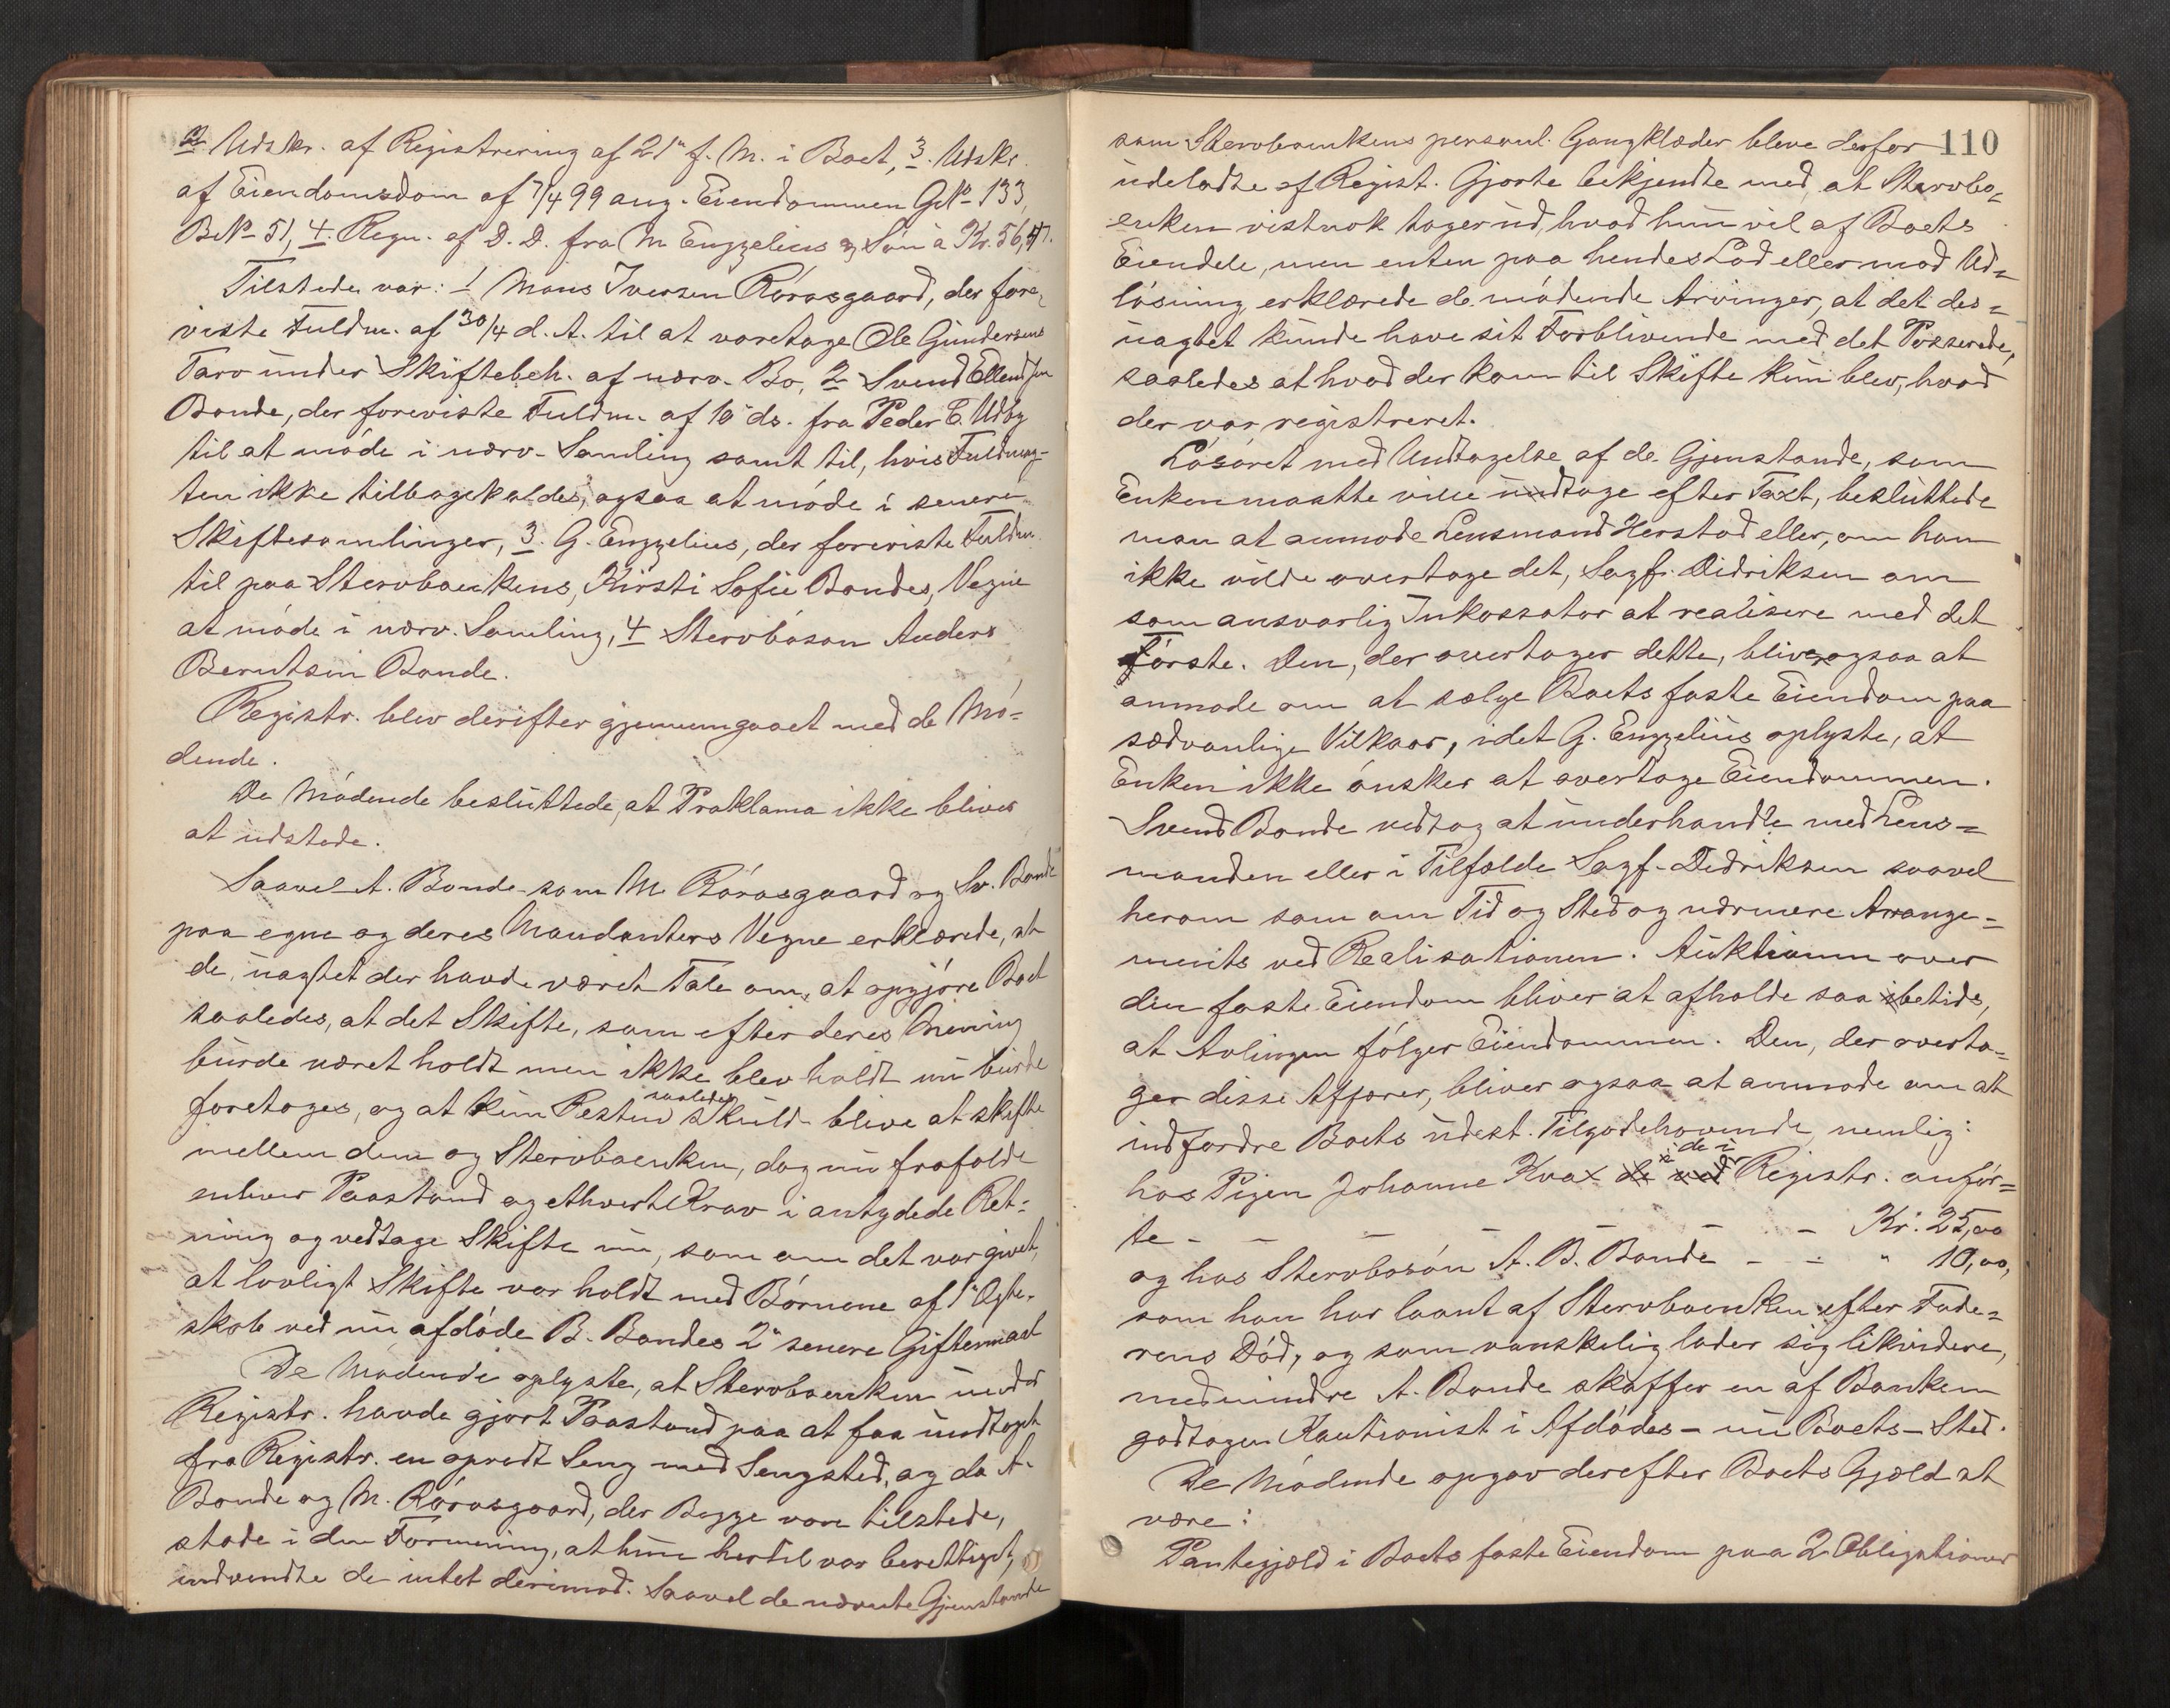 2. Udskr. af Registrering af 21' f. M. i Boet, 3. Udskr.
af Eiendomsdom af 7/4 99 ang. Eiendommen GNo 133,
BNo 51, 4. Regn. af D. D. fra M. Engzelius & Søn a Kr. 56,47.
Tilstede var: 1 Mons Iversen Rørosgaard, der fore-
viste Fuldm. af 30/4 d. A. til at varetage Ole Gundersens
Tarv under Skiftebeh. af nærv. Bo, 2 Svend Ellendsen
Bonde, der foreviste Fuldm. af 10' ds. fra Peder E. Udby
til at møde i nærv. Samling samt til, hvis Fuldmag-
ten ikke tilbagekaldes, ogsaa at møde i senere
Skiftesamlinger, 3. G. Engzelius, der foreviste Fuldm.
til paa Stervboenkens, Kirsti Sofie Bondes, Vegne
at møde i nærv. Samling, 4 Stervbosøn Anders
Berntsen Bonde.
Registr. blev derefter gjennemgaaet med de Mø-
dende.
De Mødende besluttede, at Proklama ikke bliver
at udstede.
Saavel A. Bonde som M. Rørosgaard og Sv. Bonde
paa egne og deres Mandanters Vegne erklærede, at
de, uagtet der havde været Tale om, at opgjøre Boet
saaledes, at det Skifte, som efter deres Mening
burde været holdt men ikke blev holdt nu burde
foretages, og at kun Resten saaledes skulde blive at skifte
mellem dem og Stervboenken, dog nu frafaldt
enhver Paastand og ethvert Krav i antydede Ret-
ning og vedtage Skifte nu, som om det var givet,
at lovligt Skifte var holdt med Børnene af 1' Ægte-
skab ved nu afdøde B. Bondes 2' senere Giftermaal
De Mødende oplyste, at Stervboenken under
Registr. havde gjort Paastand paa at faa undtaget
fra Registr. en opredt Seng med Sengsted, og da A.
Bonde og M. Rørosgaard, der Begge vare tilstede,
stode i den Formening, at hun hertil var berettiget,
indvendte de intet derimod. Saavel de nævnte Gjenstande
110
som Stervboenkens personl. Gangklæder bleve derfor
udeladte af Regist. Gjorte bekjendte med, at Stervbo-
enken vistnok tager ud, hvad hun vil af Boets
Eiendele, men enten paa hendes Lod eller mod Ud-
løsning erklærede de mødende Arvinger, at det des-
uagtet kunde have sit Forblivende med det Passerede,
saaledes at hvad der kom til Skifte kun blev, hvad
der var registreret.
Løsøret med Undtagelse af de Gjenstande, som
Enken maatte ville udtage efter Taxt, besluttede
man at anmode Lensmand Herstad eller, om han
ikke vilde overtage det, Sagf. Didriksen om
som ansvarlig Inkassator at realisere med det
Første. Den, der overtager dette, bliver ogsaa at
anmode om at sælge Boets faste Eiendom paa
sædvanlige Vilkaar, idet G. Engzelius oplyste, at
Enken ikke ønsker at overtage Eiendommen.
Svend Bonde vedtog at underhandle med Lens-
manden eller i Tilfælde Sagf. Didriksen saavel
herom som om Tid og Sted og nærmere Arrange-
ments ved Realisationen. Auktionen over
den faste Eiendom bliver at afholde saa betids,
at Avlingen følger Eiendommen. Den, der overta-
ger disse Affærer, bliver ogsaa at anmode om at
indfordre Boets udest. Tilgodehavende, nemlig:
hos Pigen Johanne Kvax de i Registr. anfør-
te - - - - - - Kr. 25,00
og hos Stervbosøn A. B. Bonde - - " 10,00,
som han har laant af Stervboenken efter Fade-
rens Død, og som vanskelig lader sig likvidere,
medmindre A. Bonde skaffer en af Banken
godtagen Kautionist i Afdødes - nu Boets - Sted.
De Mødende opgav derefter Boets Gjæld at
være:
Pantegjæld i Boets faste Eiendom paa 2 Obligationer